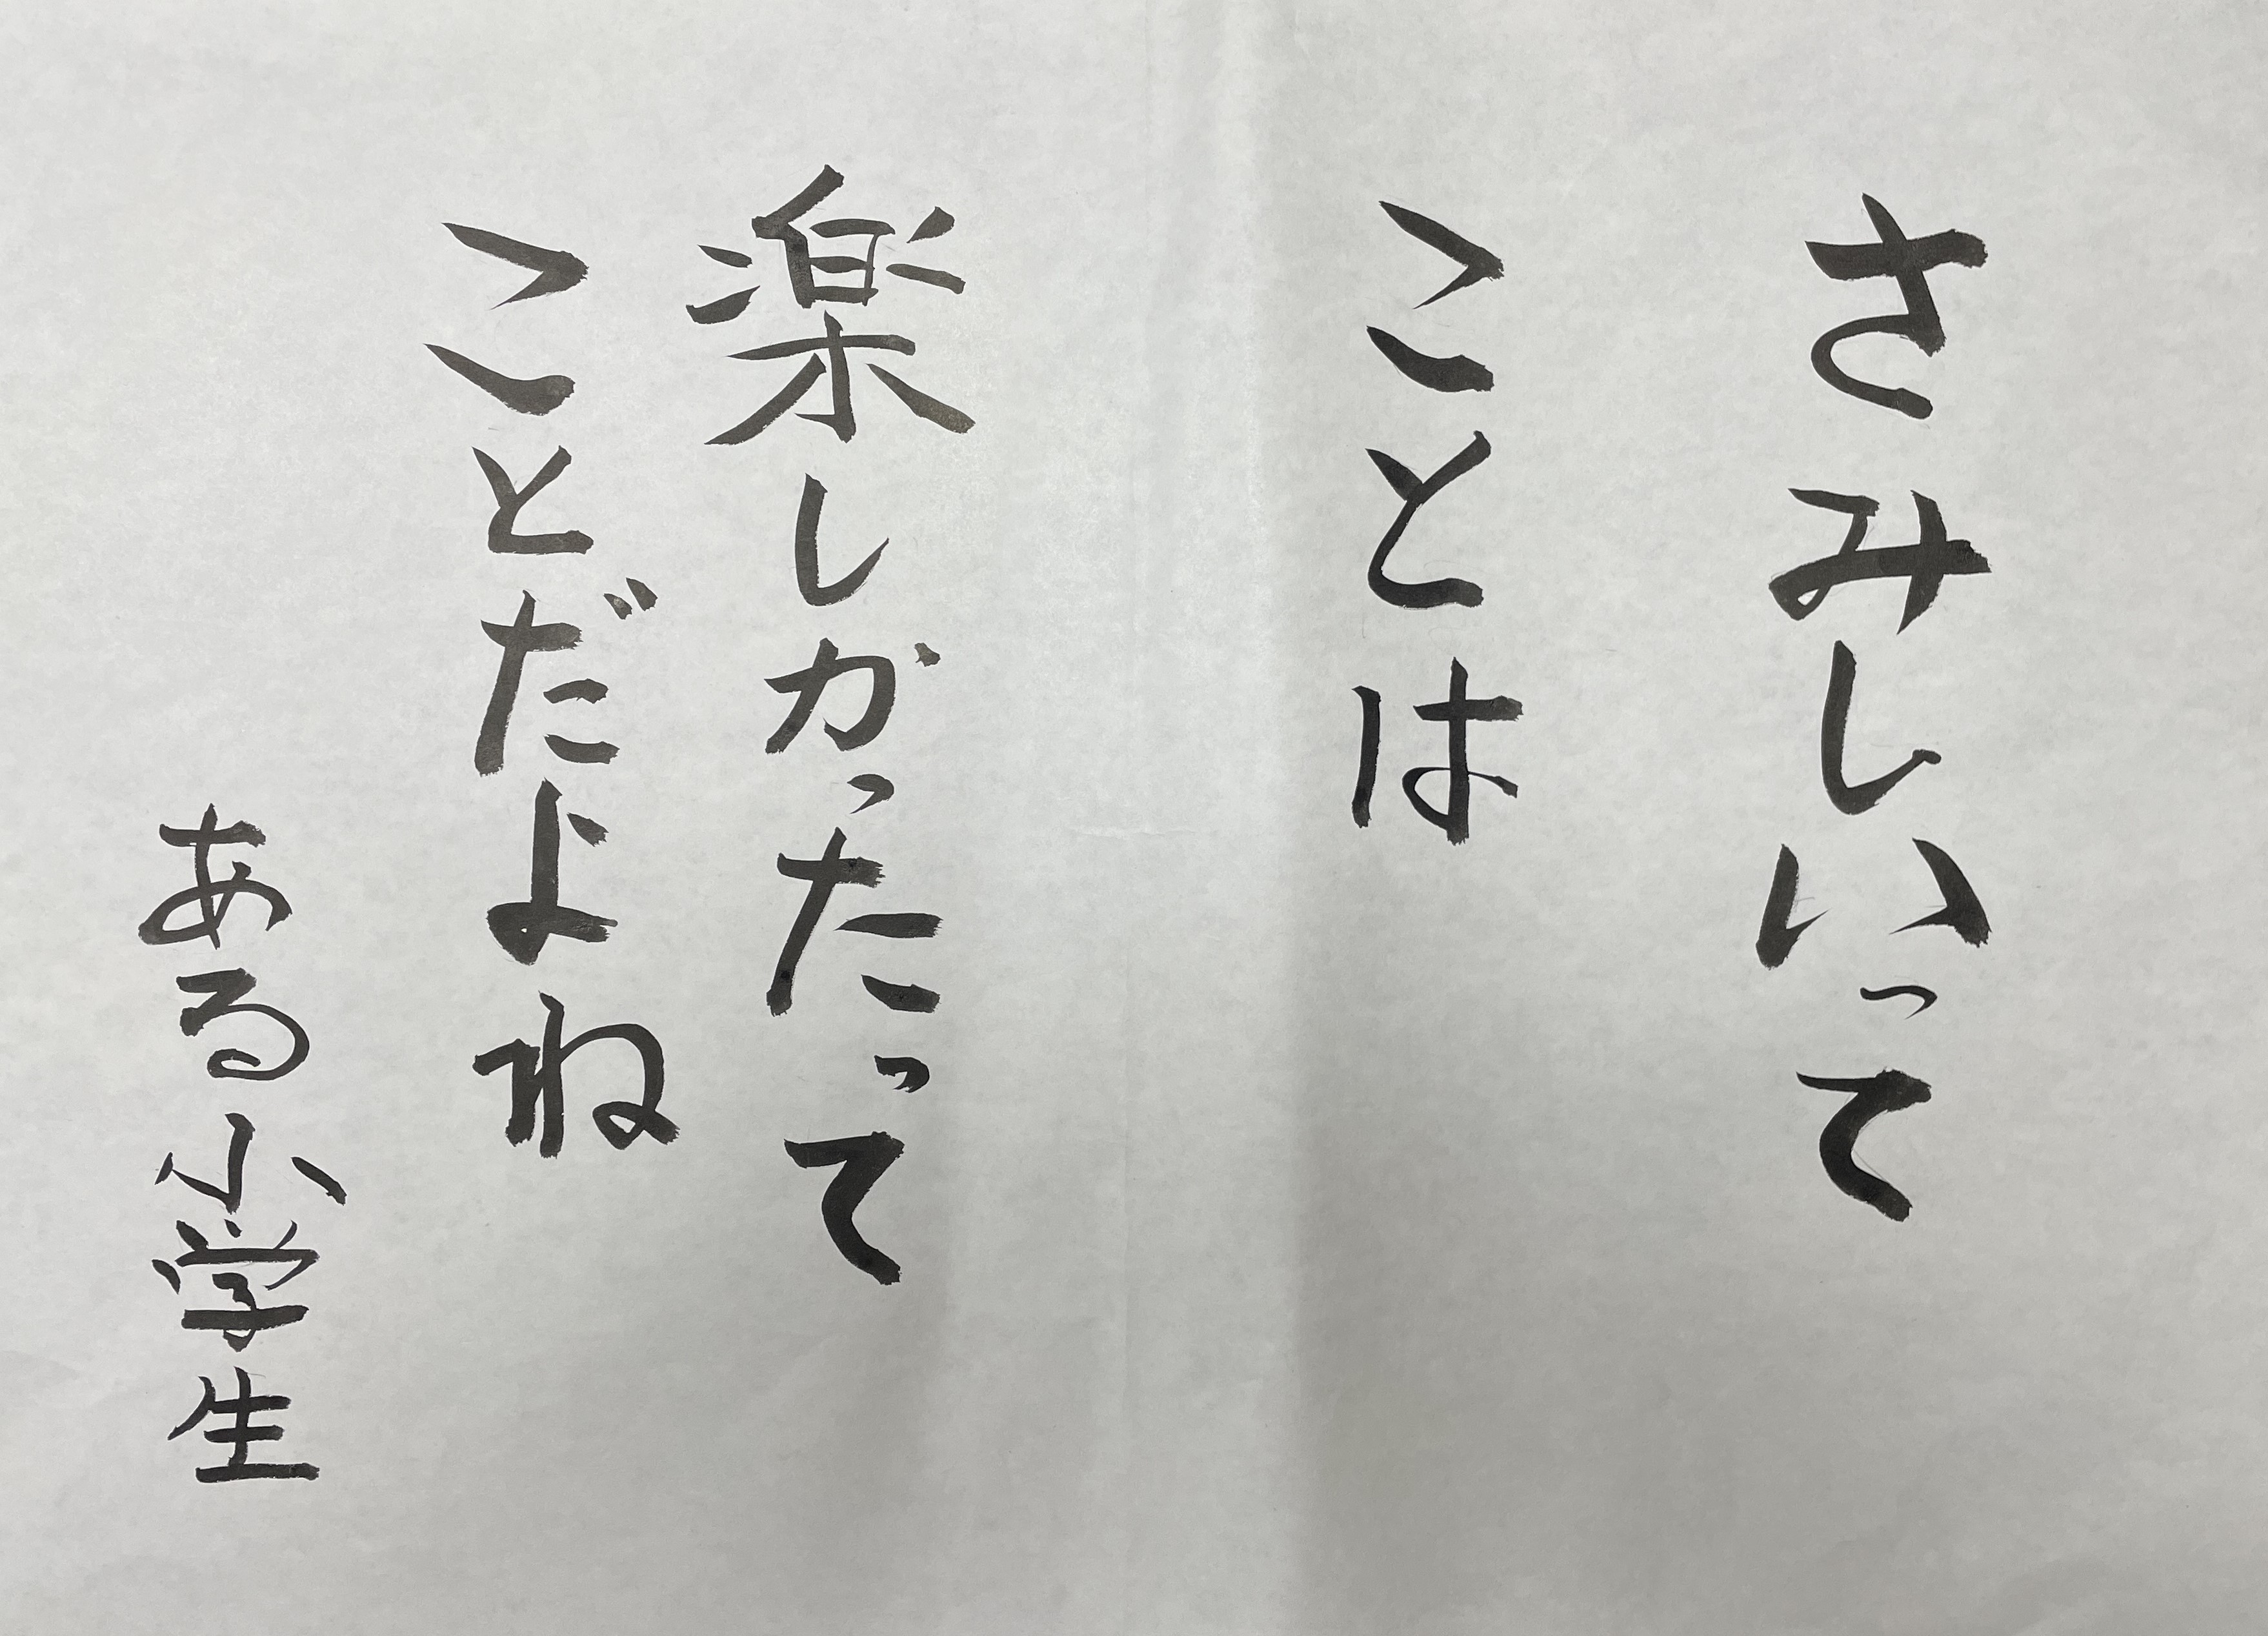 さみしいって
ことは
楽しかったって
ことだよね
ある小学生